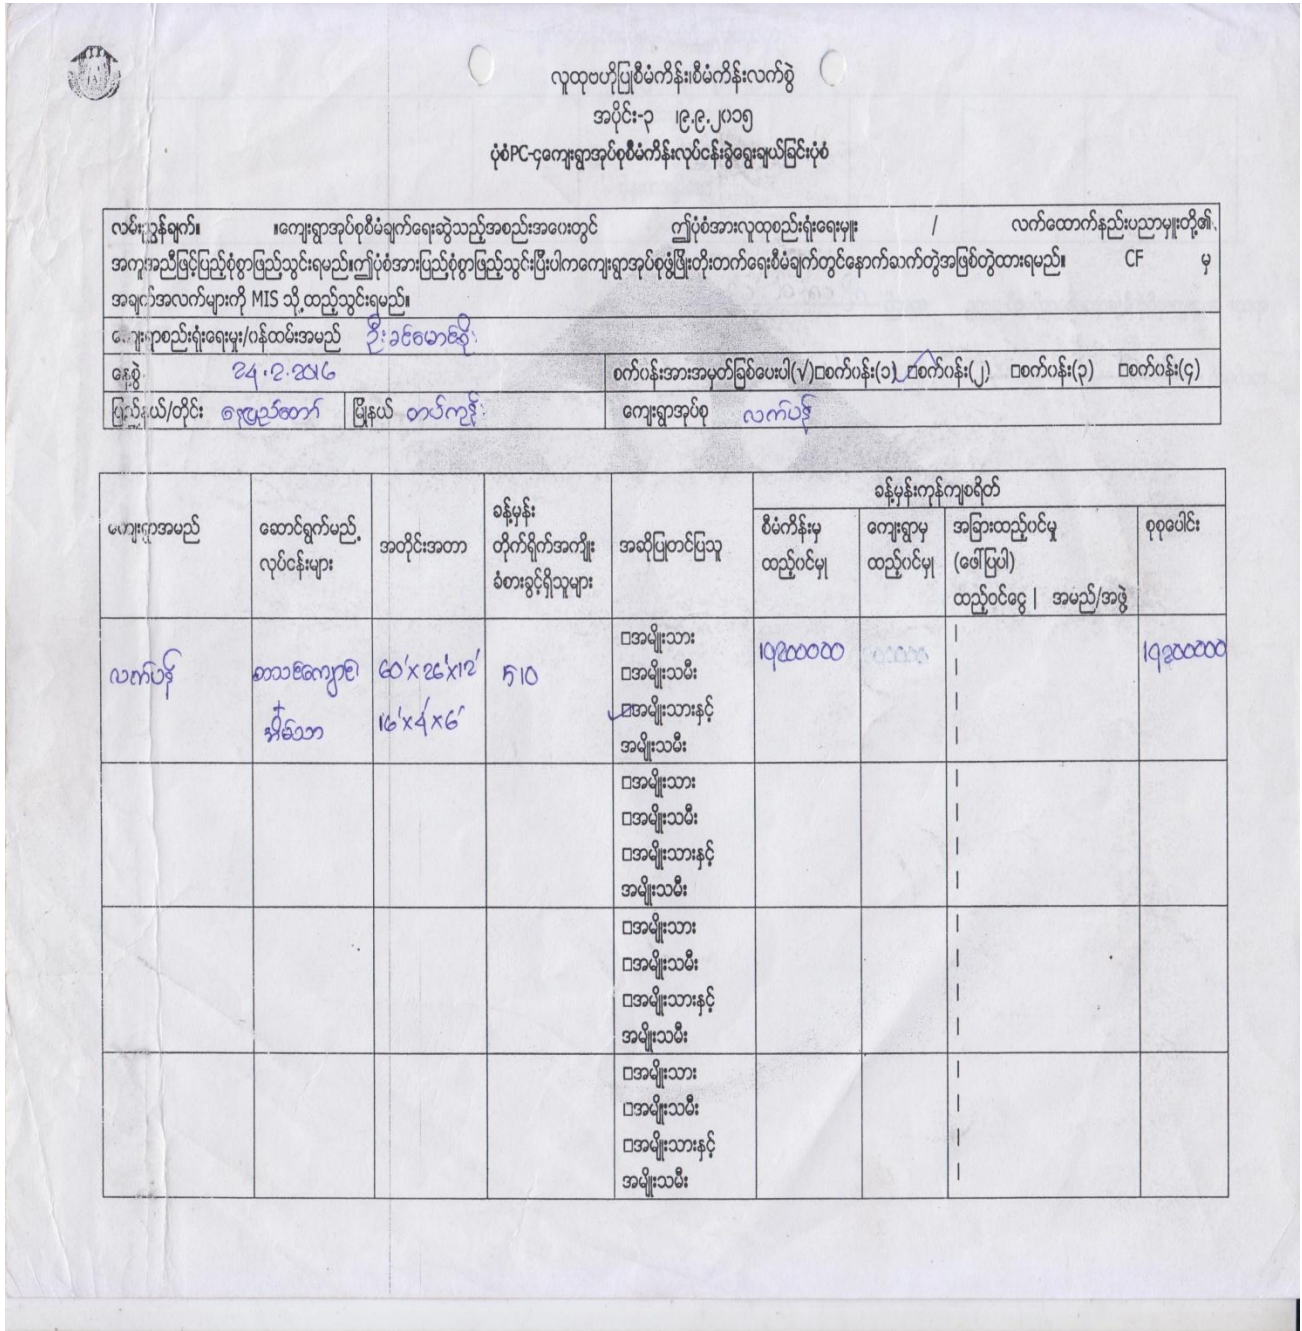 လူထုဗဟိုပြုစီမံကိန်း၊စီမံကိန်းလက်စွဲ
အပိုင်း-၃ ၊၉.၉.၂၀၁၅
ပုံစံPC-၄ကျေးရွာအုပ်စုစီမံကိန်းလုပ်ငန်းခွဲရွေးချယ်ခြင်းပုံစံ
လမ်းညွှန်ချက်။ ။ကျေးရွာအုပ်စုစီမံချက်ရေးဆွဲသည့်အစည်းအဝေးတွင် ဤပုံစံအားလူထုစည်းရုံးရေးမှူး / လက်ထောက်နည်းပညာမှူးတို့၏
အကူအညီဖြင့်ပြည့်စုံစွာဖြည့်သွင်းရမည်။ဤပုံစံအားပြည့်စုံစွာဖြည့်သွင်းပြီးပါကကျေးရွာအုပ်စုဖွံ့ဖြိုးတိုးတက်ရေးစီမံချက်တွင်နောက်ဆက်တွဲအဖြစ်တွဲထားရမည်။ CF မှ
အချက်အလက်များကို MIS သို့ထည့်သွင်းရမည်။
ကျေးရွာစည်းရုံးရေးမှူး/ဝန်ထမ်းအမည် ဦးခင်မောင်စိုး
နေ့စွဲ 24.2.2016 စက်ဝန်းအားအမှတ်ခြစ်ပေးပါ(√)□စက်ဝန်း(၁) □စက်ဝန်း(၂) □စက်ဝန်း(၃) □စက်ဝန်း(၄)
ပြည်နယ်/တိုင်း နေပြည်တော် မြို့နယ် တပ်ကုန်း ကျေးရွာအုပ်စု လက်ပန်
ခန့်မှန်းကုန်ကျစရိတ်
ကျေးရွာအမည် ဆောင်ရွက်မည့်လုပ်ငန်းများ အတိုင်းအတာ ခန့်မှန်းတိုက်ရိုက်အကျိုးခံစားခွင့်ရှိသူများ အဆိုပြုတင်ပြသူ စီမံကိန်းမှထည့်ဝင်မှု ကျေးရွာမှထည့်ဝင်မှု အခြားထည့်ဝင်မှု (ဖေါ်ပြပါ) ထည့်ဝင်ငွေ | အမည်/အဖွဲ့ စုစုပေါင်း
လက်ပန် စာသင်ကျောင်း 60'x26'x12' 510 □အမျိုးသား
+ အိမ်သာ 16'x4'x6' □အမျိုးသမီး
□အမျိုးသားနှင့်
အမျိုးသမီး
□အမျိုးသား
□အမျိုးသမီး
□အမျိုးသားနှင့်
အမျိုးသမီး
□အမျိုးသား
□အမျိုးသမီး
□အမျိုးသားနှင့်
အမျိုးသမီး
□အမျိုးသား
□အမျိုးသမီး
□အမျိုးသားနှင့်
အမျိုးသမီး